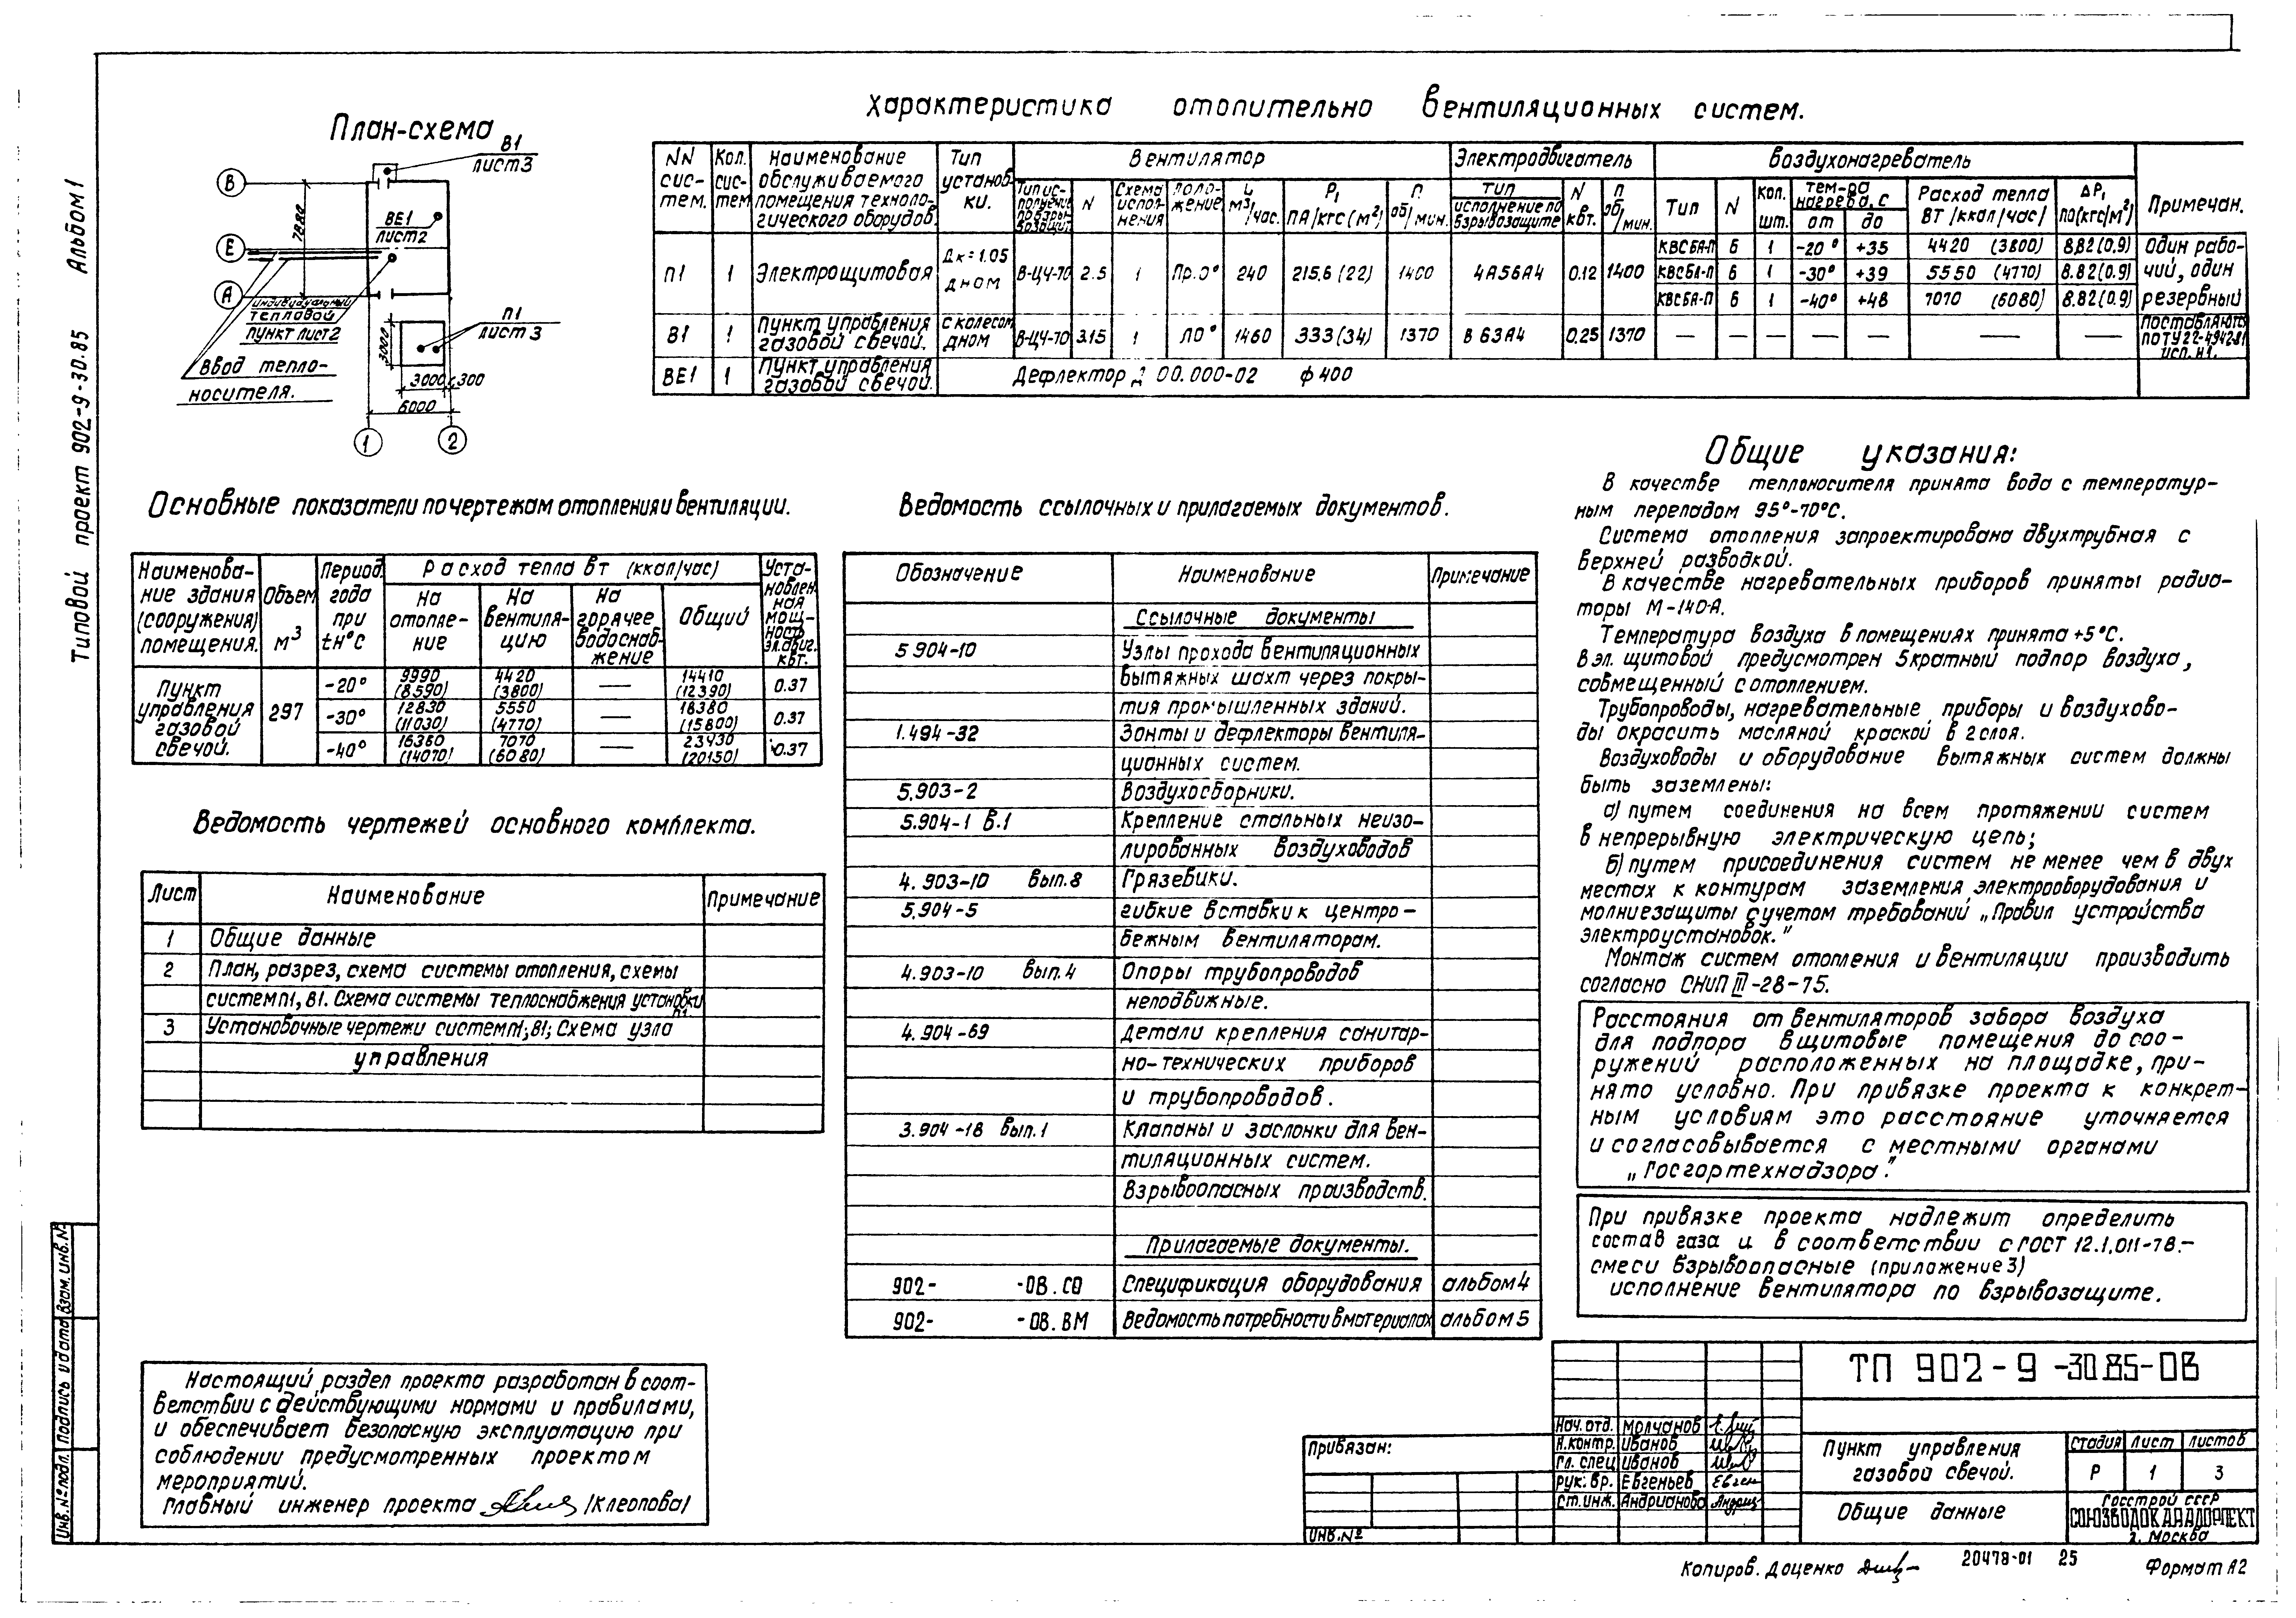 Типовой проект 902-9-30.85 Альбом 1
План-схема
В1
лист3
В
Е
А
7880
ВЕ1
лист2
индивидуальный
тепловой
пункт лист2
П1
лист 3
3000
Ввод тепло-
носителя.
3000 300
6000
1 2
Характеристика отопительно вентиляционных систем.
NN сис- тем. | Кол. сис- тем | Наименование обслуживаемого помещения техноло- гического оборудов. | Тип установ- ки. | Вентилятор | Электродвигатель | Воздухонагреватель | Примечан.
N | Схема испол- нения | Поло- жение | L м³/час. | P₁ ПА/кгс(м²) | п об/мин. | тип исполнение по взрывозащите | N квт. | п об/мин. | Тип | N | Кол. шт. | тем-ра нагрева, с от до | Расход тепла ВТ /ккал/час/ | ΔР, па(кгс/м²)
П1 | 1 | Электрощитовая | Дк=1.05 дном | В-Ц4-70 | 2.5 | 1 | Пр.0° | 240 | 215,6 (22) | 1400 | 4А56А4 | 0.12 | 1400 | КВСБА-П | 6 | 1 | -20° | +35 | 4420 (3800) | 8.82(0.9) | Один рабо-
КВСБА-П | 6 | 1 | -30° | +39 | 5550 (4770) | 8.82(0.9) | чий, один
КВСБА-П | 6 | 1 | -40° | +48 | 7070 (6080) | 8.82(0.9) | резервный
В1 | 1 | Пункт управления газовой свечой. | с колесом дном | В-Ц4-70 | 3.15 | 1 | Л0° | 1460 | 333(34) | 1370 | В 63А4 | 0.25 | 1370 | — | — | — | — | — | — | — | поставляются по ТУ22-4942-81 исп. н1.
ВЕ1 | 1 | Пункт управления газовой свечой. | Дефлектор Д 00.000-02 ф 400
Основные показатели по чертежам отопления и вентиляции.
Наименова- ние здания (сооружения) помещения. | Объем м³ | Период года при tн°с | Расход тепла вт (ккал/час) | Уста- новлен- ная мощ- ность эл.двиг. квт.
На отопле- ние | На вентиля- цию | На горячее водоснаб- жение | Общий
Пункт управления газовой свечой. | 297 | -20° | 9990 (8590) | 4420 (3800) | — | 14410 (12390) | 0.37
-30° | 12830 (11030) | 5550 (4770) | — | 18380 (15800) | 0.37
-40° | 16360 (14070) | 7070 (6080) | — | 23430 (20150) | 0.37
Ведомость чертежей основного комплекта.
Лист | Наименование | Примечание
1 | Общие данные
2 | План, разрез, схема системы отопления, схемы
систем п1, в1. Схема системы теплоснабжения установки п1.
3 | Установочные чертежи систем п1; в1; Схема узла
управления
Настоящий раздел проекта разработан в соот-
ветствии с действующими нормами и правилами,
и обеспечивает безопасную эксплуатацию при
соблюдении предусмотренных проектом
мероприятий.
Главный инженер проекта /Клеопова/
Ведомость ссылочных и прилагаемых документов.
Обозначение | Наименование | Примечание
Ссылочные документы
5 904-10 | Узлы прохода вентиляционных
вытяжных шахт через покры-
тия промышленных зданий.
1.494-32 | Зонты и дефлекторы вентиля-
ционных систем.
5.903-2 | Воздухосборники.
5.904-1 в.1 | Крепление стальных неизо-
лированных воздуховодов
4.903-10 вып.8 | Грязевики.
5.904-5 | гибкие вставки к центро-
бежным вентиляторам.
4.903-10 вып.4 | Опоры трубопроводов
неподвижные.
4.904-69 | Детали крепления санитар-
но-технических приборов
и трубопроводов.
3.904-18 вып.1 | Клапаны и заслонки для вен-
тиляционных систем.
Взрывоопасных производств.
Прилагаемые документы.
902- -ОВ.СО | Спецификация оборудования | альбом 4
902- -ОВ.ВМ | Ведомость потребности в материалах | альбом 5
Общие указания:
В качестве теплоносителя принята вода с температур-
ным перепадом 95°-70°С.
Система отопления запроектирована двухтрубная с
верхней разводкой.
В качестве нагревательных приборов приняты радиа-
торы М-140-А.
Температура воздуха в помещениях принята +5°С.
В эл. щитовой предусмотрен 5кратный подпор воздуха,
совмещенный с отоплением.
Трубопроводы, нагревательные приборы и воздухово-
ды окрасить масляной краской в 2 слоя.
Воздуховоды и оборудование вытяжных систем должны
быть заземлены:
а) путем соединения на всем протяжении систем
в непрерывную электрическую цепь;
б) путем присоединения систем не менее чем в двух
местах к контурам заземления электрооборудования и
молниезащиты с учетом требований „Правил устройства
электроустановок."
Монтаж систем отопления и вентиляции производить
согласно СНиП III-28-75.
Расстояния от вентиляторов забора воздуха
для подпора в щитовые помещения до соо-
ружений расположенных на площадке, при-
нято условно. При привязке проекта к конкрет-
ным условиям это расстояние уточняется
и согласовывается с местными органами
„Госгортехнадзора".
При привязке проекта надлежит определить
состав газа и в соответствии с ГОСТ 12.1.011-78.-
смеси взрывоопасные (приложение 3)
исполнение вентилятора по взрывозащите.
ТП 902-9-30.85-ОВ
Нач. отд. Молчанов
Н.контр. Иванов
Гл. спец Иванов
Рук. вр. Евгеньев
Ст. инж. Андрианова
Привязан:
Инв.№
Пункт управления
газовой свечой.
Стадия Лист Листов
Р 1 3
Общие данные
Госстрой СССР
СОЮЗВОДОКАНАЛПРОЕКТ
г. Москва
Инв.№подл. Подпись и дата Взам.инв.№
Копиров. Доценко
20478-01 25
Формат А2